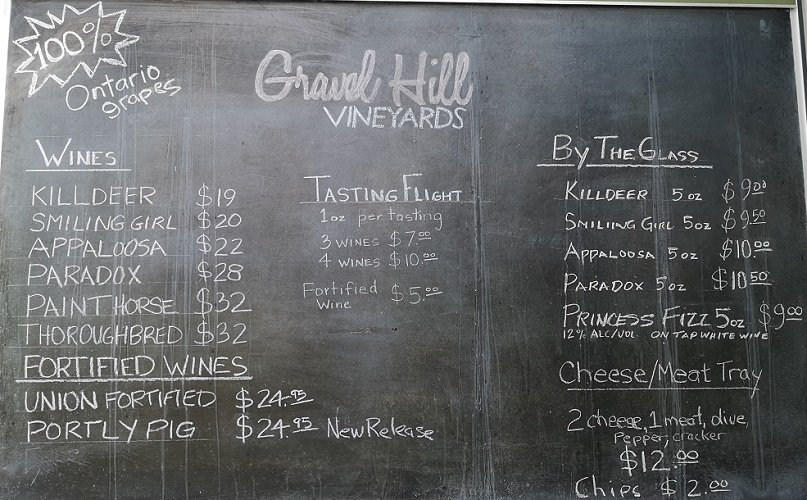 100%
Ontario
grapes
Gravel Hill
VINEYARDS
WINES
KILLDEER $19
SMILING GIRL $20
APPALOOSA $22
PARADOX $28
PAINT HORSE $32
THOROUGHBRED $32
FORTIFIED WINES
UNION FORTIFIED $24.95
PORTLY PIG $24.95 New Release
TASTING FLIGHT
1oz per tasting
3 WINES $7.00
4 WINES $10.00
Fortified
Wine $5.00
BY THE GLASS
KILLDEER 5oz $9.00
SMILING GIRL 5oz $9.50
APPALOOSA 5oz $10.00
PARADOX 5oz $10.50
PRINCESS FIZZ 5oz $9.00
12% ALC/VOL. ON TAP WHITE WINE
Cheese/Meat Tray
2 cheese, 1 meat, olive,
Pepper, cracker
$12.00
Chips $2.00